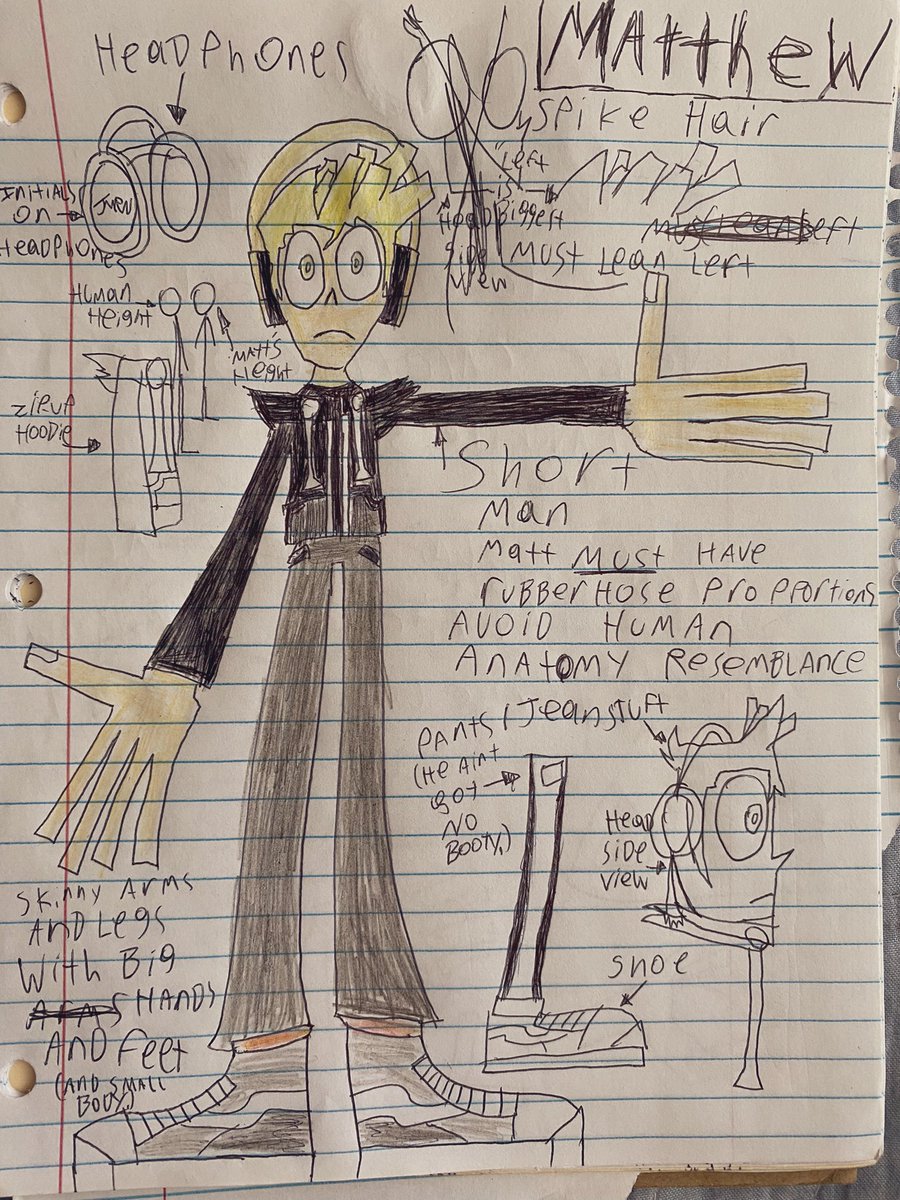 Matthew
Headphones
Spike Hair
Left
is
Bigger
Initials
on
Headphones
Must Lean Left
Left
Head
Side
View
Human
Height
Matt's
Height
Zip-up
Hoodie
Short
Man
Matt Must Have
rubberhose proportions
Avoid Human
Anatomy Resemblance
Pants/Jean stuff
(He aint
got
no
Booty.)
Head
Side
view
Shoe
Skinny Arms
And Legs
With Big
Arms Hands
And feet
(And small
Body.)